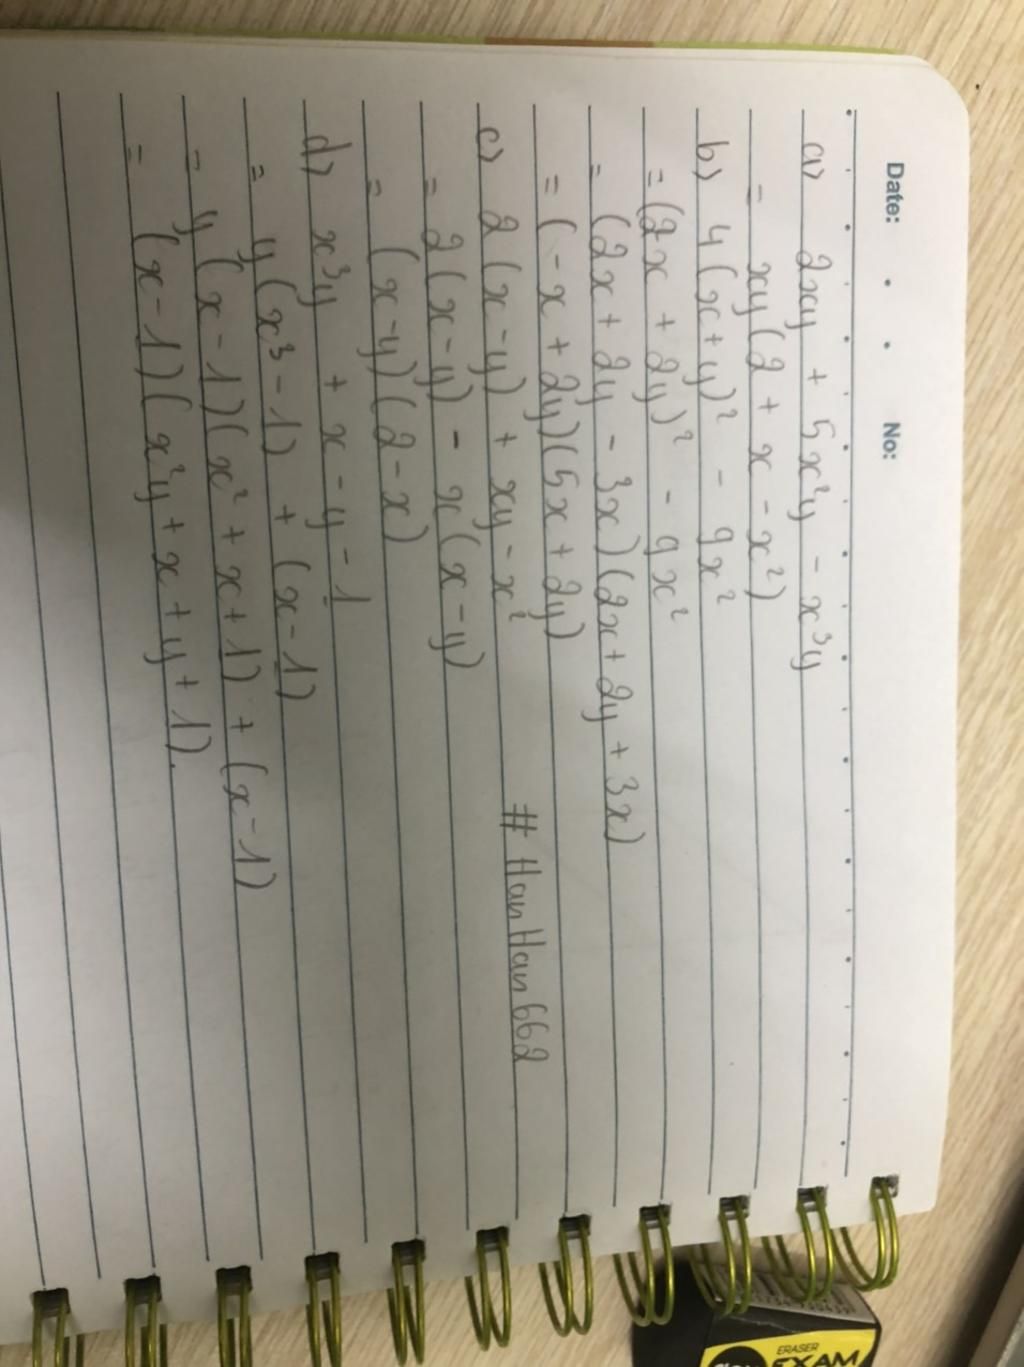 Date: No:
a) 2xy + 5x²y - x³y
= xy(2 + x - x²)
b) 4(x+y)² - 9x²
= (2x + 2y)² - 9x²
= (2x + 2y - 3x)(2x + 2y + 3x)
= (-x + 2y)(5x + 2y)
c) 2(x-y) + xy - x²
= 2(x-y) - x(x-y)
= (x-y)(2-x)
# HanHan662
d) x³y + x - y - 1
= y(x³ - 1) + (x-1)
= y(x-1)(x² + x + 1) + (x-1)
= (x-1)(x²y + x + y + 1).
ERASER
EXAM